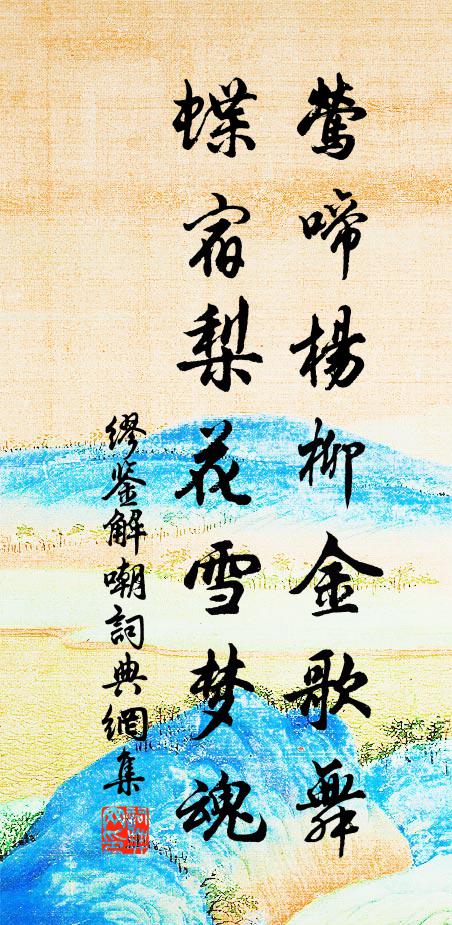 莺啼楊柳金歌舞
蝶宿梨花雪梦魂
繆鉴解嘲詞典網集